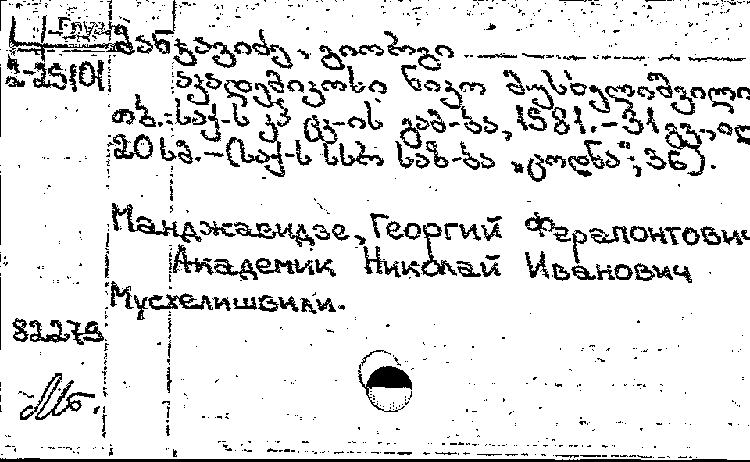 Груз.
მანჯავიძე, გიორგი
2-25101
აკადემიკოსი ნიკო მუსხელიშვილი
თბ.: საქ-ს კპ ცკ-ის გამ-ბა, 1981.-31 გვ; ილ
20 სმ.-(საქ-ს სსრ საზ-ბა „ცოდნა“; 36).
Манджавидзе, Георгий Ферапонтович
Академик Николай Иванович
Мусхелишвили.
82279